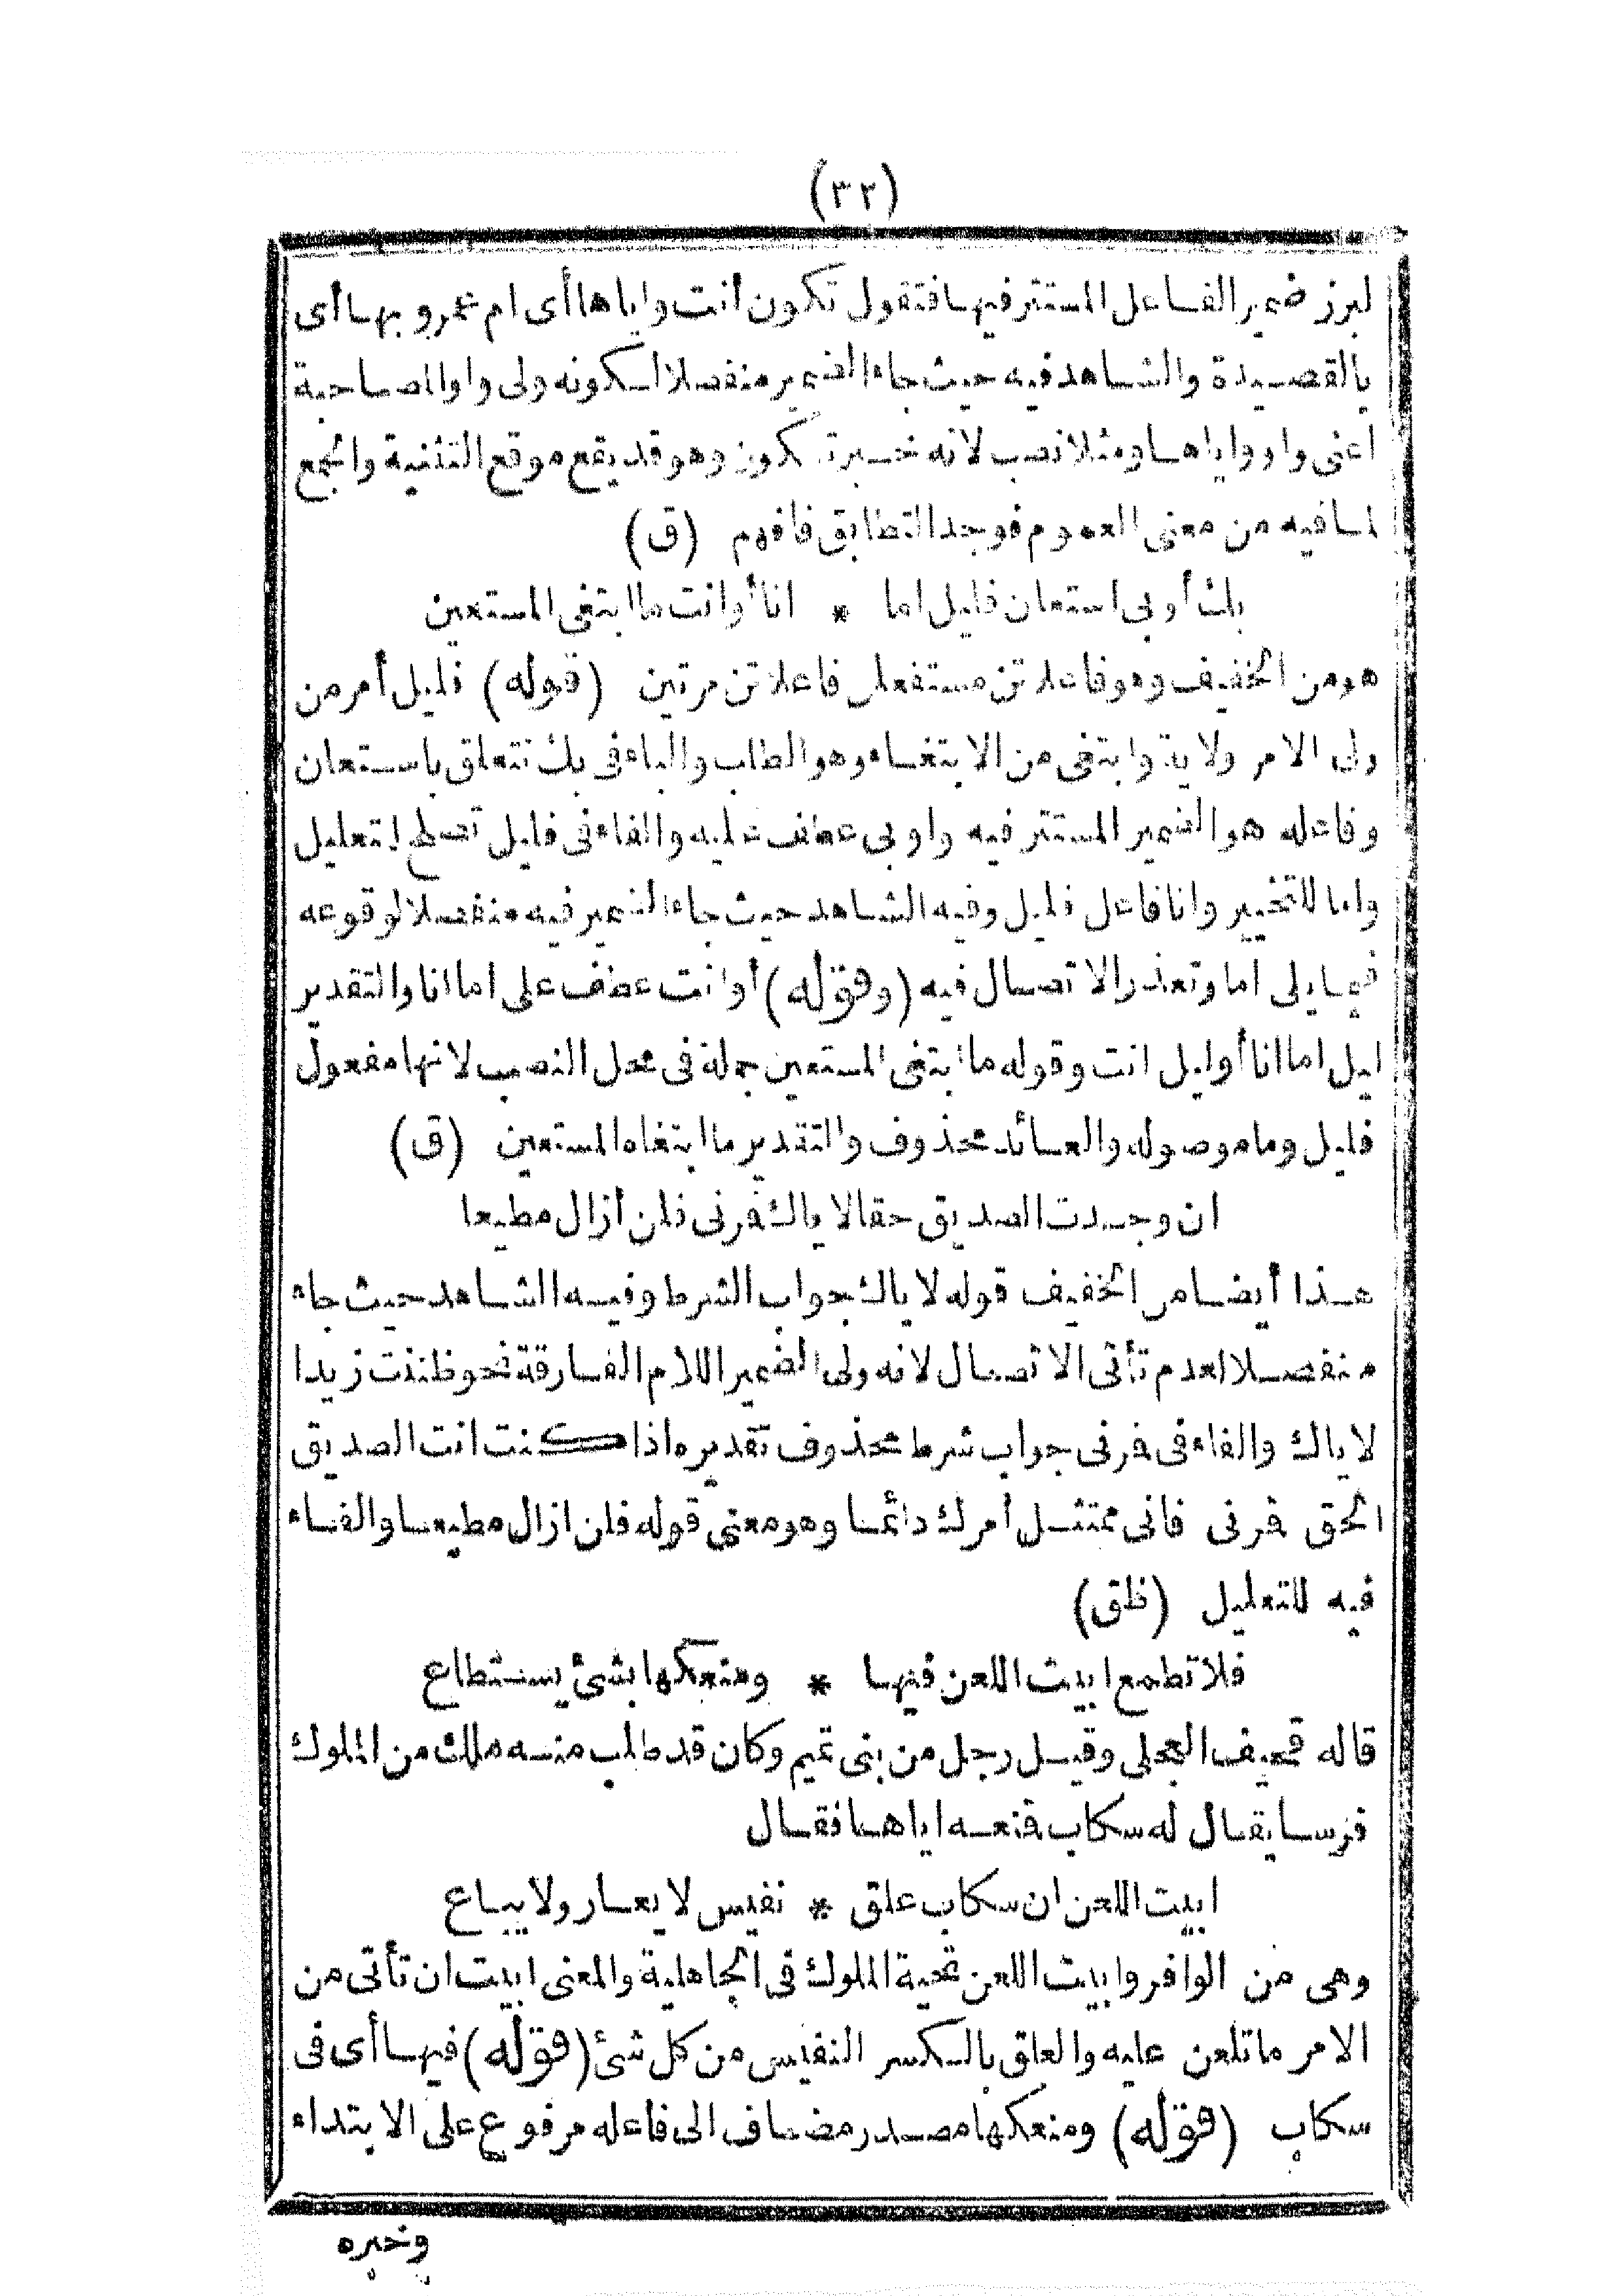 (٣٢)
لبرز ضمير الفاعل المستتر فيها فتقول تكون أنت واياها أى ام عمرو بها أى
بالقصيدة والشاهد فيه حيث جاء الضمير منفصلا لكونه ولى واو المصاحبة
اعنى واو واياها ومثلا نصب لانه خبر تكون وهو قد يقع موقع التثنية والجمع
لما فيه من معنى العموم فوجد التطابق فافهم (ق)
بك أو بى استعان فليل اما * انا أو انت ما ابتغى المستعين
هو من الخفيف وهو فاعلاتن مستفعلن فاعلاتن مرتين (قوله) فليل أمر من
ولى الامر ولاية وابتغى من الابتغاء وهو الطلب والباء فى بك تتعلق باستعان
وفاعله هو الضمير المستتر فيه واو بى عطف عليه والفاء فى فليل تصلح لتعليل
واما للتخيير وانا فاعل فليل وفيه الشاهد حيث جاء الضمير فيه منفصلا لوقوعه
فيما يلى اما وتعذر الاتصال فيه (وقوله) أو انت عطف على اما انا والتقدير
ليل اما انا أو ليل انت وقوله ما ابتغى المستعين جملة فى محل النصب لانها مفعول
فليل وما موصوله والعائد محذوف والتقدير ما ابتغاه المستعين (ق)
ان وجدت الصديق حقا لاياك فمرنى فلن أزال مطيعا
هذا أيضا من الخفيف قوله لاياك جواب الشرط وفيه الشاهد حيث جاء
منفصلا لعدم تأتى الاتصال لانه ولى الضمير اللام الفارقة نحو ظننت زيدا
لاياك والفاء فى فمرنى جواب شرط محذوف تقديره اذا كنت انت الصديق
الحق فمرنى فانى ممتثل أمرك دائما وهو معنى قوله فلن ازال مطيعا والفاء
فيه للتعليل (ظق)
فلا تطمع ابيت اللعن فيها * ومنعكها بشئ يستطاع
قاله قحيف العجلى وقيل رجل من بنى تميم وكان قد طلب منه ملك من الملوك
فرسا يقال له سكاب فمنعه اياها فقال
ابيت اللعن ان سكاب علق * نفيس لا يعار ولا يباع
وهى من الوافر وابيت اللعن تحية الملوك فى الجاهلية والمعنى ابيت ان تأتى من
الامر ما تلعن عليه والعلق بالكسر النفيس من كل شئ (قوله) فيها أى فى
سكاب (قوله) ومنعكها مصدر مضاف الى فاعله مرفوع على الابتداء
وخبره